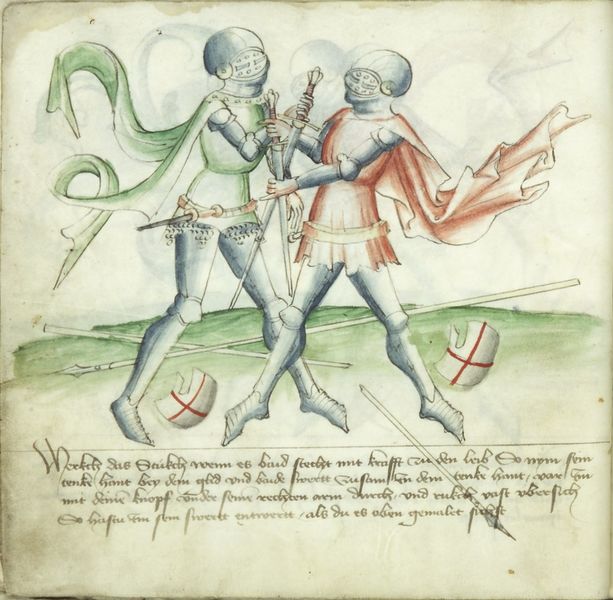 Merckh das Stukch wenn es baid stecht mit krafft zu den leib So nym sein
tenke hant bey dem glid vnd baide swertt zusam in dein tenke hant, vare Im
mit deinē knopf vnder seinē rechten arem durch, vnd rukch vast vbersich
So hastu Im sein swertt entwertt, als du es oben gemalet sichst